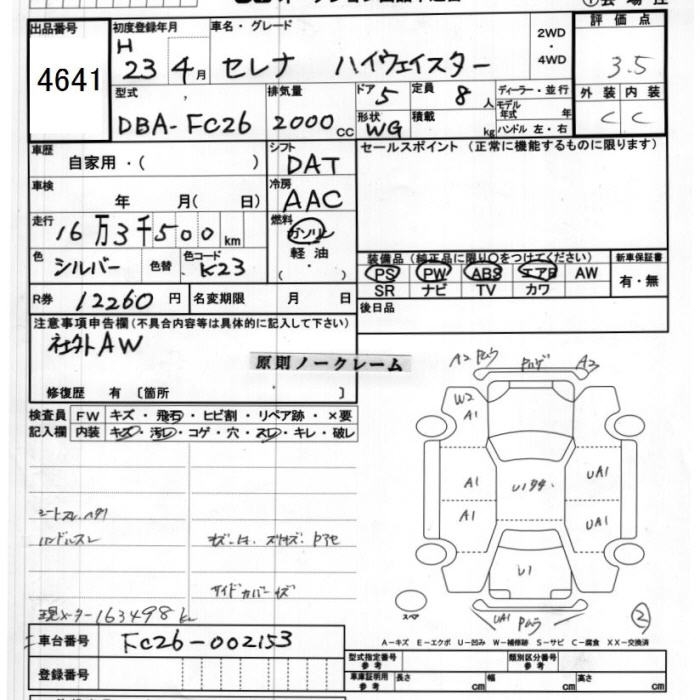 出品番号 初度登録年月 車名・グレード 2WD・4WD 評価点
4641 H 23 4月 セレナ ハイウェイスター 3.5
型式 排気量 ドア 5 定員 8人 ディーラー・並行 外装 内装
DBA-FC26 2000cc 形状 WG 積載 kg モデル年式 年 C C
ハンドル 左・右
車歴 自家用・( ) シフト DAT セールスポイント(正常に機能するものに限ります)
車検 年 月( 日) 冷房 AAC
走行 16万3千500km 燃料 ガソリン
軽油・( )
色 シルバー 色替 色コード K23
装備品(純正品に限り○をつけてください) 新車保証書
PS PW ABS エアB AW 有・無
SR ナビ TV カワ
R券 12260円 名変期限 月 日 後日品
注意事項申告欄(不具合内容等は具体的に記入して下さい)
社外AW
原則ノークレーム
修復歴 有〔箇所 〕
検査員記入欄 FW キズ・飛石・ヒビ割・リペア跡・×要
内装 キズ・汚レ・コゲ・穴・スレ・キレ・破レ
A2 A2
W2
A1
A1 UA1
A1 UA1
U1
UA1
ハンドルスレ
現メーター163498km
スペア
②
A－キズ E－エクボ U－凹み W－補修跡 S－サビ C－腐食 XX－交換済
車台番号 FC26-002153
登録番号
型式指定番号参考 類別区分番号参考
車庫証明用参考 長さ cm 幅 cm 高さ cm